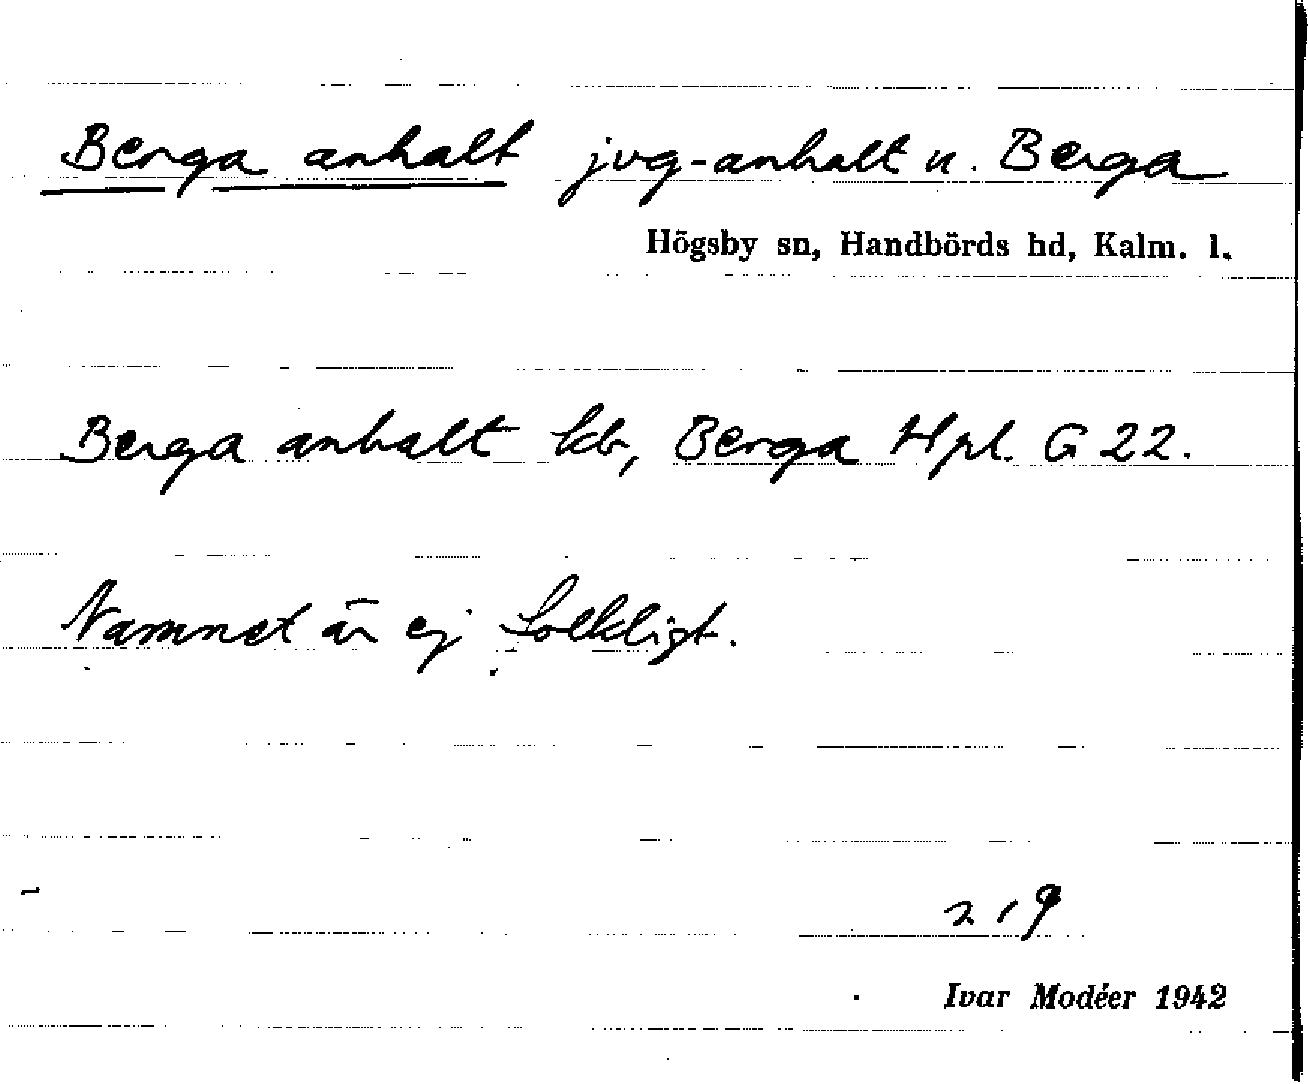 Berga anhalt jvg-anhalt n. Berga
Högsby sn, Handbörds hd, Kalm. l.
Berga anhalt kb, Berga Hpl. G 22.
Namnet är ej folkligt.
219
Ivar Modéer 1942